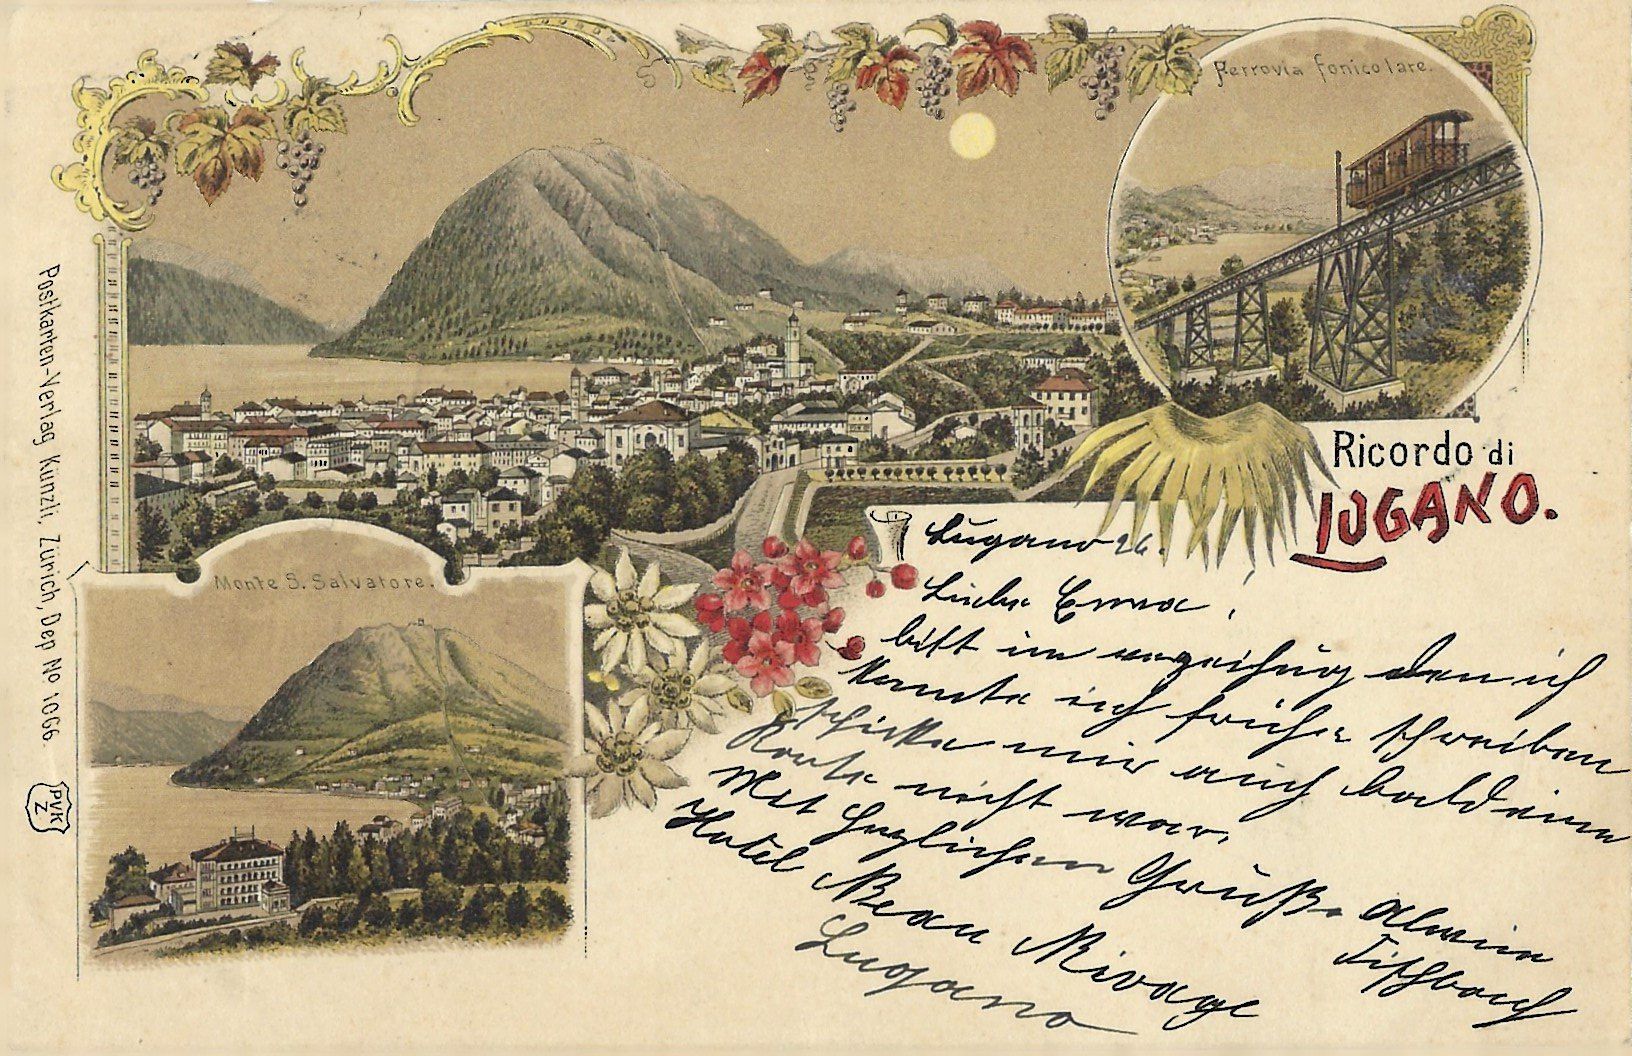 Ferrovia fonicolare.
Ricordo di
LUGANO.
Monte S. Salvatore.
Postkarten-Verlag Künzli, Zürich, Dep No 1066.
PVK
Z
Lugano 26.
Liebe Emma!
bitt um verzeihung den ich
konnte nich früher schreiben
schicke mir auch bald eine
Karte nicht war.
Mit herzlichen Gruß. Alwin
Fischbach
Hotel Beau Rivage
Lugano